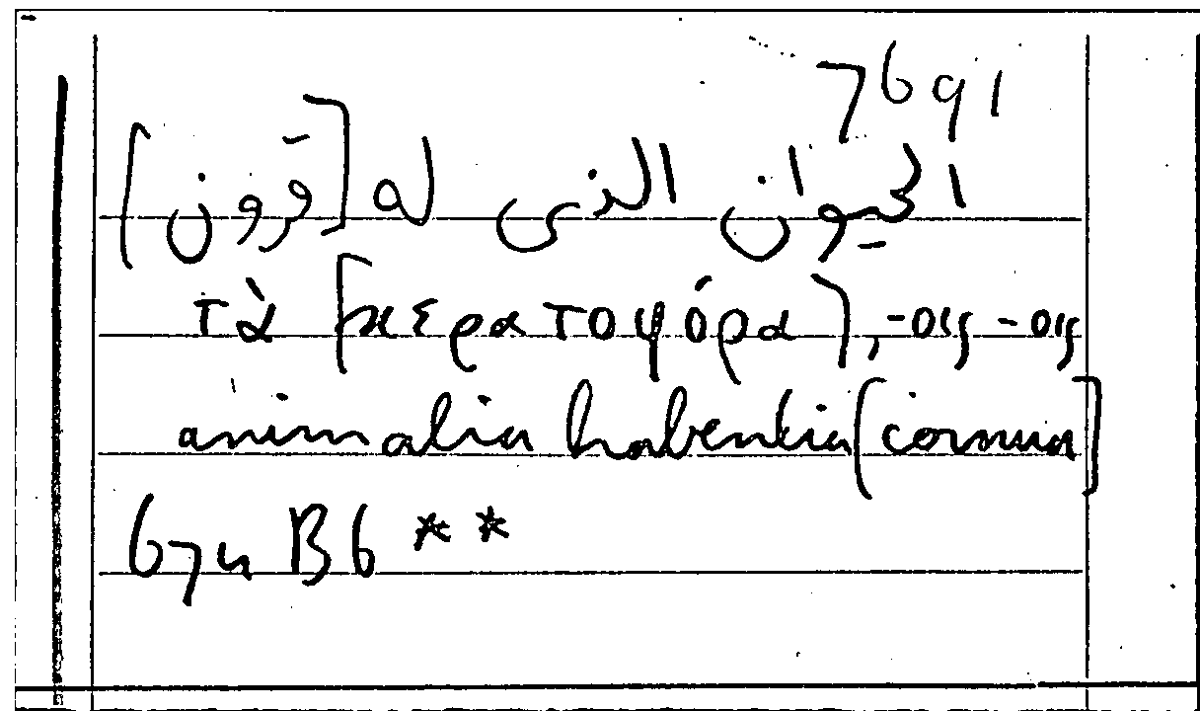 7691
الحيوان الذى له [قرون]
τὰ [κερατοφόρα], -οις -οις
animalia habentia [cornua]
674 B6 **